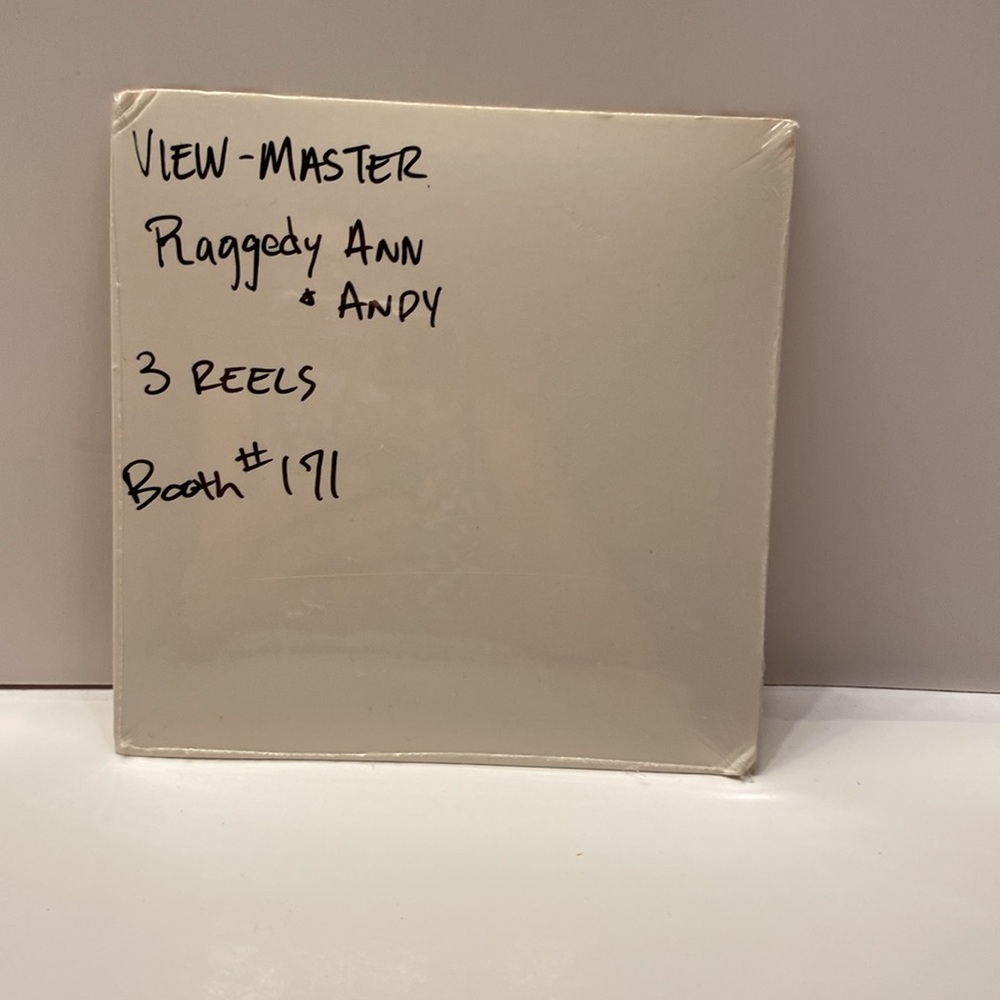 VIEW-MASTER
Raggedy ANN
& ANDY
3 REELS
Booth #171